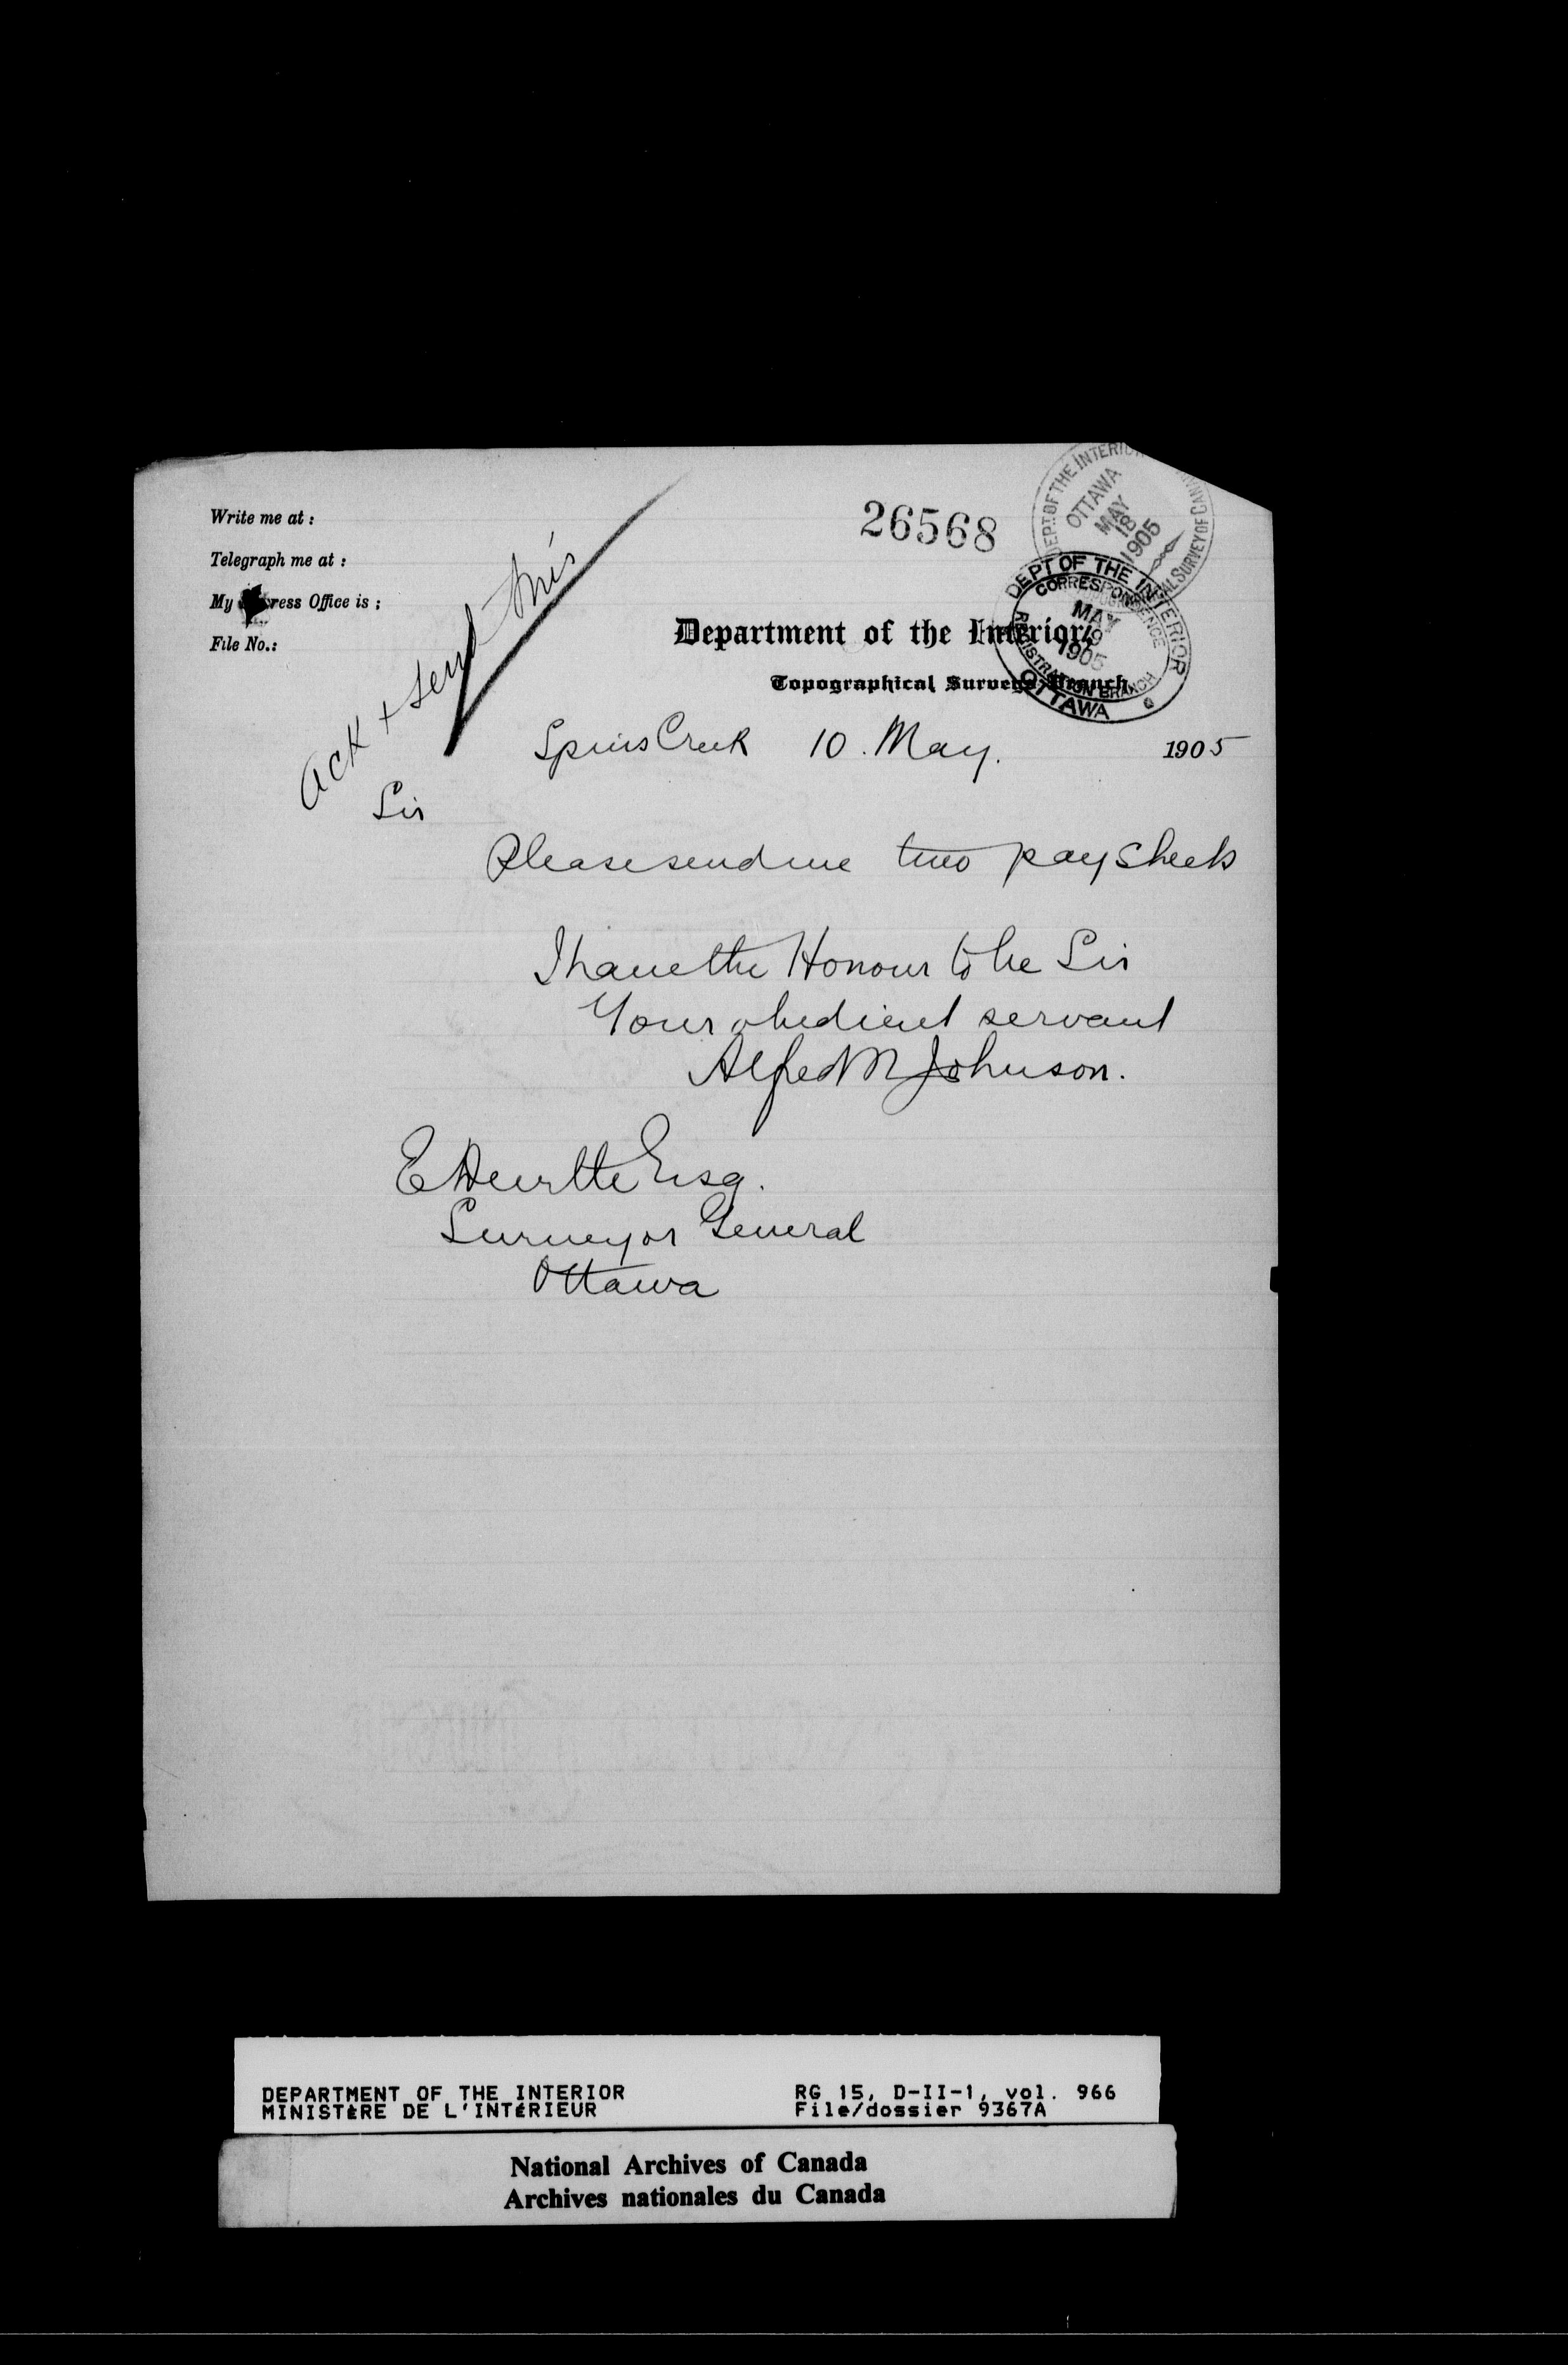 Write me at :
Telegraph me at :
My ress Office is ;
File No.:
Ack + send this
26568
DEPT. OF THE INTERIOR
OTTAWA
MAY
18
1905
AL SURVEY OF CAN
DEPT OF THE INTERIOR
CORRESPONDENCE
MAY
19
1905
REGISTRATION BRANCH
OTTAWA
Department of the Interior,
Topographical Surveys Branch
Spius Creek 10. May. 1905
Sir
Please send me two pay sheets
I have the Honour to be Sir
Your obedient servant
Alfred M Johnson.
E Esq.
Surveyor General
Ottawa
DEPARTMENT OF THE INTERIOR
MINISTÈRE DE L'INTÉRIEUR
RG 15, D-II-1, vol. 966
File/dossier 9367A
National Archives of Canada
Archives nationales du Canada